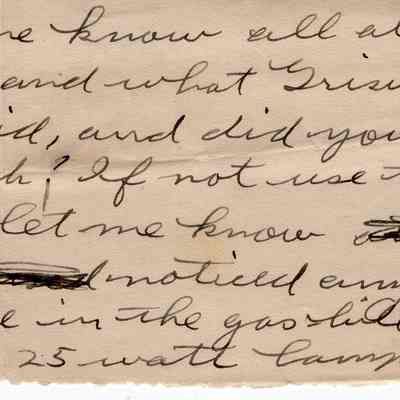 me know all a
and what Gris
id, and did you
h? If not use
let me know
noticed any
e in the gas bill
25 watt lamp